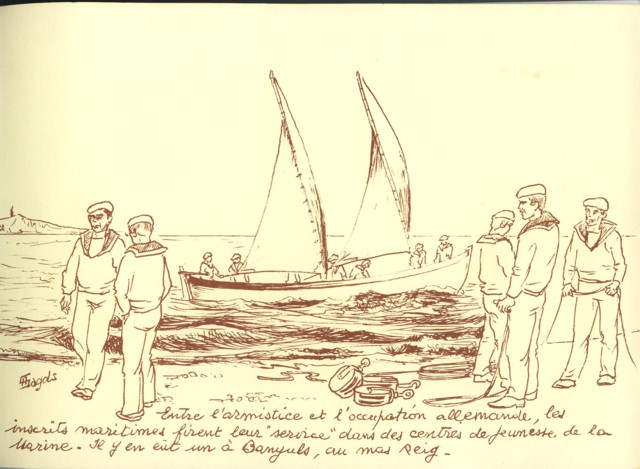 Fagols
Entre l'armistice et l'occupation allemande, les
inscrits maritimes firent leur "service" dans des centres de jeunesse de la
Marine - Il y en eût un à Banyuls, au mas Reig -